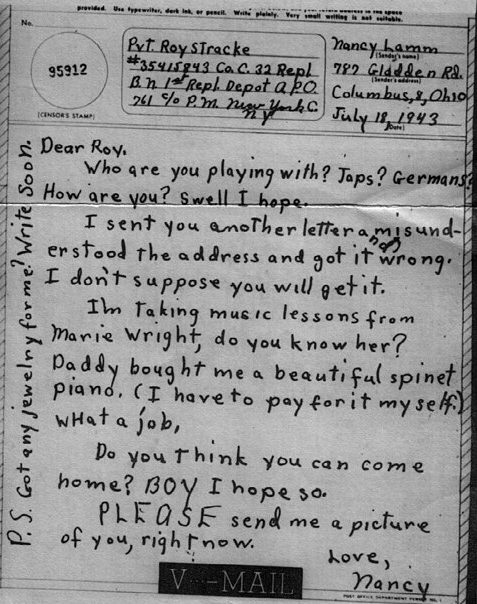 provided. Use typewriter, dark ink, or pencil. Write plainly. Very small writing is not suitable.
No.
95912
(CENSOR'S STAMP)
Pvt. Roy Stracke
#35415843 Co. C. 32 Repl
B. n 1st Repl. Depot A.P.O.
761 c/o P.M. New York C.
NY
Nancy Lamm
(Sender's name)
787 Gladden Rd.
(Sender's address)
Columbus, 8, Ohio
July 18, 1943
(Date)
Dear Roy.
Who are you playing with? Japs? Germans?
How are you? Swell I hope.
I sent you another letter and misund-
erstood the address and got it wrong.
I don't suppose you will get it.
I'm taking music lessons from
Marie Wright, do you know her?
Daddy bought me a beautiful spinet
piano. (I have to pay for it myself.)
WHat a job,
Do you think you can come
home? BOY I hope so.
PLEASE send me a picture
of you, right now.
Love,
Nancy
P.S. Got any jewelry for me? Write Soon.
V···-MAIL
POST OFFICE DEPARTMENT PERMIT NO. 1